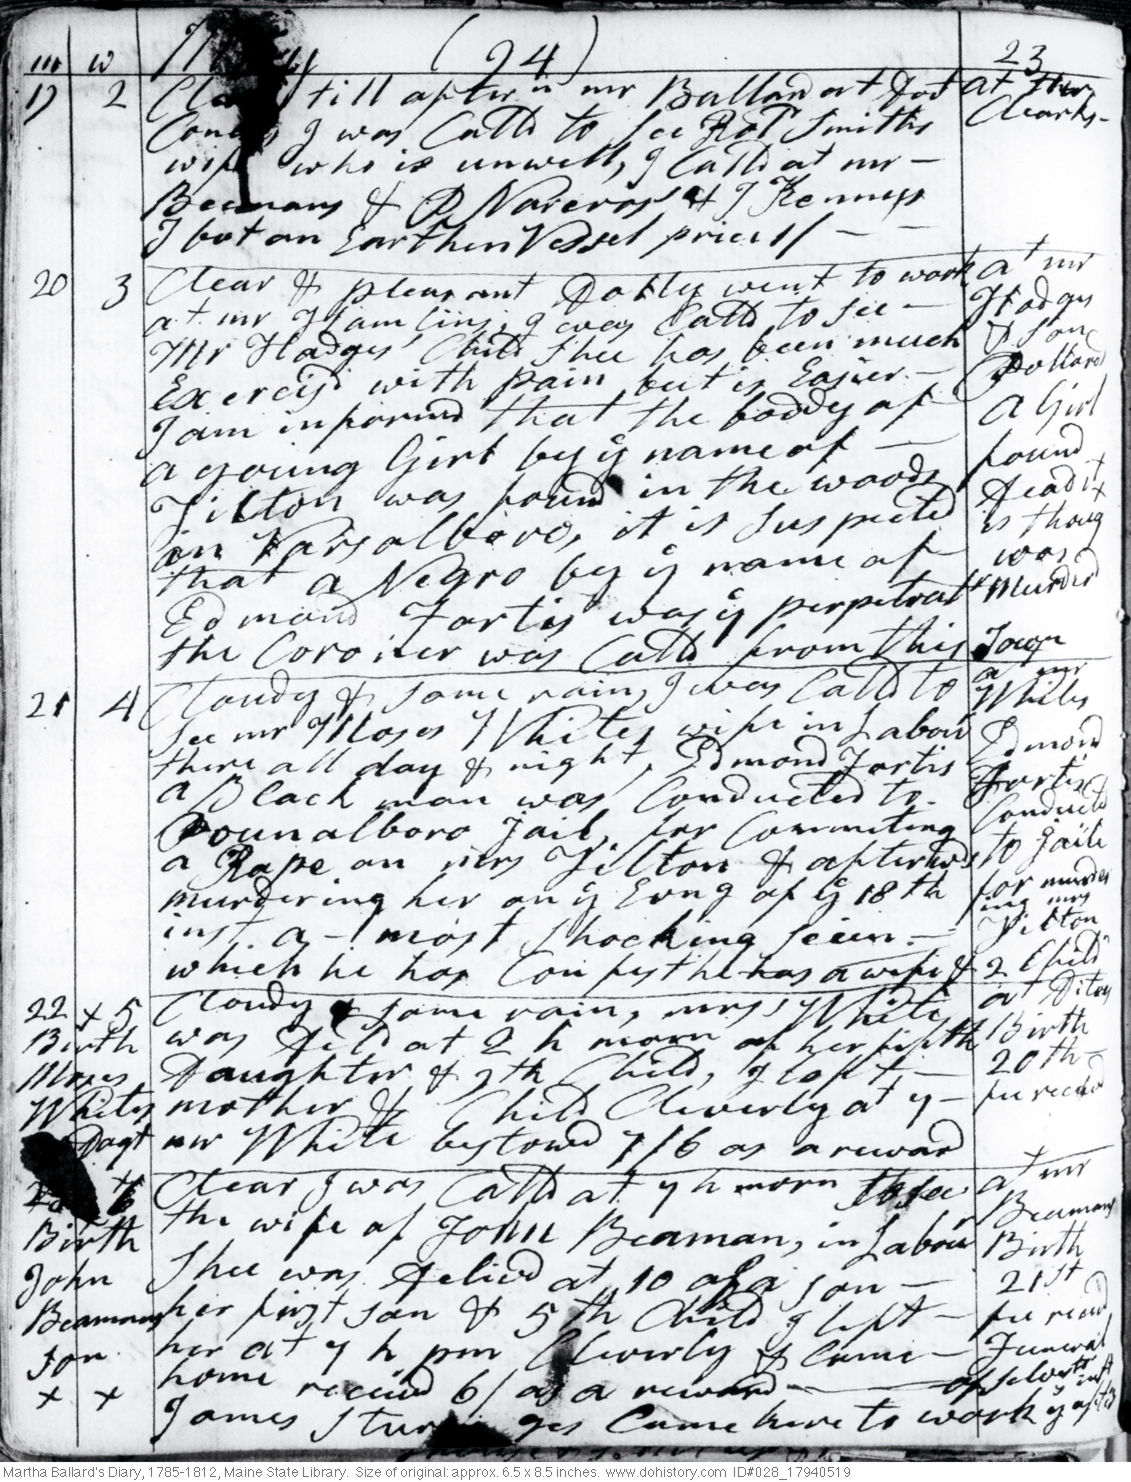 m w (24) 23
19 2 till after in mr Ballard at at
I was Calld to see Robt Smiths Clearks -
wife who is unwell, I Calld at mr -
Beemans & & J Kennys
I bot an Earthen Vessel price 1/ - -
20 3 Clear & pleasant Dolly went to work at mr
at mr Hamlins, I was Calld to See - Hodges
Mr Hodges Child Shee has been much & Son
Exercisd with pain but is Easier - Pollard
I am informd that the boddy of A Girl
a young Girl by ye name of - found
Tilton was found in the woods Dead it
in Varsalboro, it is Suspected is thoug
that a Negro by ye name of was
Edmond Fortis was ye perpetratr Murderd
the Coroner was Calld from this Town
21 4 Cloudy & some rain, I was Calld to at mr
See mr Moses Whites wife in Labour Whites
there all day & night, Edmond Fortis Edmond
a Black man was Conducted to Fortis
Pounalboro Jail, for Commiting Conductd
a Rape on mrs Tilton & afterwds to Jaile
murdering her on ye Evng of ye 18th for murder
inst. a - most Shocking Seein - ing mrs Tilton
which he has Confest he has a wife & 2 Child
22 x 5 Cloudy & some rain, mrss White at Ditoy
Birth was Deld at 2 h morn of her fifth Birth
Moses Daughter & 9th Child, I left - 20th -
Whites mother & Child Cleverly at 9 - fee receivd
Dagt mr White bestowd 7/6 as a reward
6 Clear I was Calld at 9 h morn to see at mr
Birth the wife of John Beaman, in Labour Beamans
John Shee was Delivd at 10 of a son - Birth
Beamans her first son & 5th Child I left - 21st
son her at 9 h pm Cleverly & Came - fee receivd
x x home receivd 6/ as a reward - Funeral
James Sturges Came here to work ye
Martha Ballard's Diary, 1785-1812, Maine State Library. Size of original: approx. 6.5 x 8.5 inches. www.dohistory.com ID#028_17940519